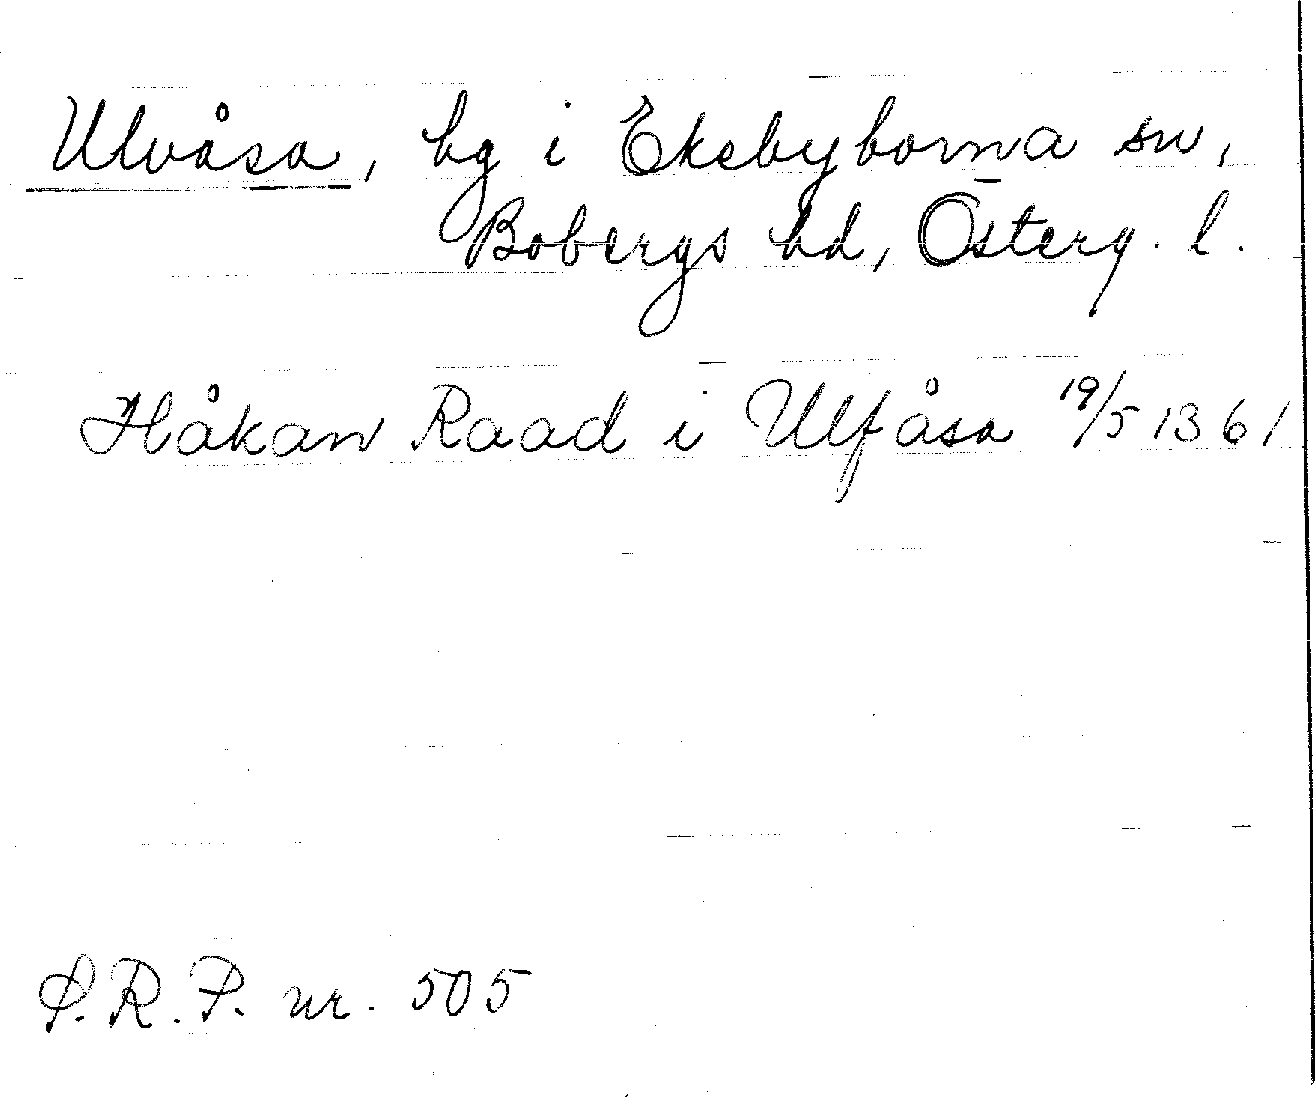 Ulvåsa, hg i Ekebyborna sn,
Bobergs hd, Österg. l.
Håkan Raad i Ulfåsa 19/5 1361
S.R.P. nr. 505